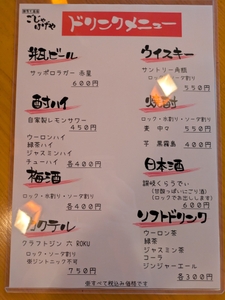 こじゃれげや
ドリンクメニュー
瓶ビール
サッポロラガー 赤星
600円
酎ハイ
自家製レモンサワー
450円
ウーロンハイ
緑茶ハイ
ジャスミンハイ
チューハイ 各400円
梅酒
ロック・水割り・ソーダ割り
各400円
カクテル
クラフトジン 六 ROKU
ロック・ソーダ割り
※ジントニック不可
750円
ウイスキー
サントリー角瓶
550円
焼酎
ロック・水割り・ソーダ割り
麦 中々 550円
芋 黒霧島 400円
日本酒
讃岐くらうでぃ
(甘酸っぱいにごり酒)
(ロックでお出しします)
600円
ソフトドリンク
ウーロン茶
緑茶
ジャスミン茶
コーラ
ジンジャーエール
各300円
※すべて税込み価格です